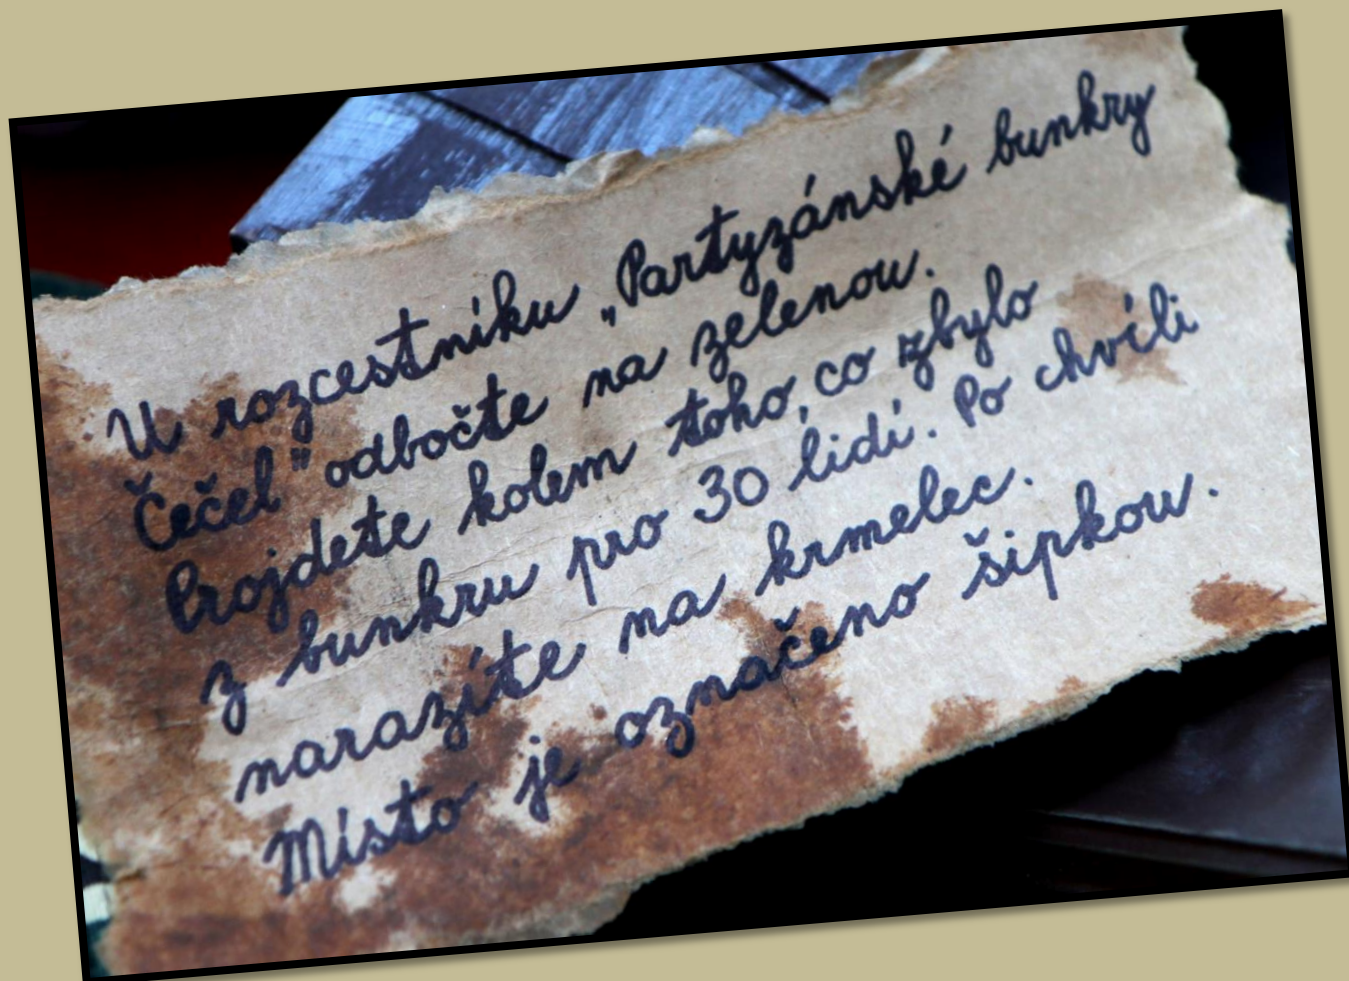 U rozcestníku „Partyzánské bunkry
Čečel" odbočte na zelenou.
Projdete kolem toho, co zbylo
z bunkru pro 30 lidí. Po chvíli
narazíte na krmelec.
Místo je označeno šipkou.